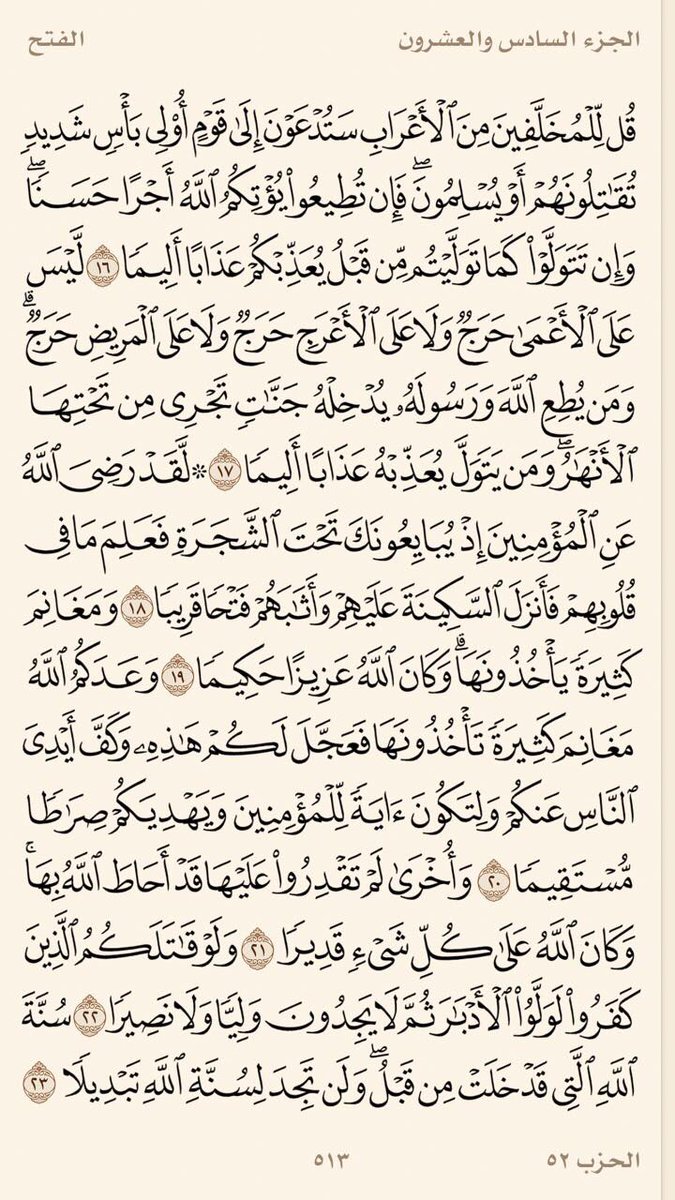 الجزء السادس والعشرون الفتح
قُل لِّلۡمُخَلَّفِينَ مِنَ ٱلۡأَعۡرَابِ سَتُدۡعَوۡنَ إِلَىٰ قَوۡمٍ أُوْلِي بَأۡسٖ شَدِيدٖ
تُقَٰتِلُونَهُمۡ أَوۡ يُسۡلِمُونَۖ فَإِن تُطِيعُواْ يُؤۡتِكُمُ ٱللَّهُ أَجۡرًا حَسَنٗاۖ
وَإِن تَتَوَلَّوۡاْ كَمَا تَوَلَّيۡتُم مِّن قَبۡلُ يُعَذِّبۡكُمۡ عَذَابًا أَلِيمٗا ١٦ لَّيۡسَ
عَلَى ٱلۡأَعۡمَىٰ حَرَجٞ وَلَا عَلَى ٱلۡأَعۡرَجِ حَرَجٞ وَلَا عَلَى ٱلۡمَرِيضِ حَرَجٞۗ
وَمَن يُطِعِ ٱللَّهَ وَرَسُولَهُۥ يُدۡخِلۡهُ جَنَّٰتٖ تَجۡرِي مِن تَحۡتِهَا
ٱلۡأَنۡهَٰرُۖ وَمَن يَتَوَلَّ يُعَذِّبۡهُ عَذَابًا أَلِيمٗا ١٧ ۞ لَّقَدۡ رَضِيَ ٱللَّهُ
عَنِ ٱلۡمُؤۡمِنِينَ إِذۡ يُبَايِعُونَكَ تَحۡتَ ٱلشَّجَرَةِ فَعَلِمَ مَا فِي
قُلُوبِهِمۡ فَأَنزَلَ ٱلسَّكِينَةَ عَلَيۡهِمۡ وَأَثَٰبَهُمۡ فَتۡحٗا قَرِيبٗا ١٨ وَمَغَانِمَ
كَثِيرَةٗ يَأۡخُذُونَهَاۗ وَكَانَ ٱللَّهُ عَزِيزًا حَكِيمٗا ١٩ وَعَدَكُمُ ٱللَّهُ
مَغَانِمَ كَثِيرَةٗ تَأۡخُذُونَهَا فَعَجَّلَ لَكُمۡ هَٰذِهِۦ وَكَفَّ أَيۡدِيَ
ٱلنَّاسِ عَنكُمۡ وَلِتَكُونَ ءَايَةٗ لِّلۡمُؤۡمِنِينَ وَيَهۡدِيَكُمۡ صِرَٰطٗا
مُّسۡتَقِيمٗا ٢٠ وَأُخۡرَىٰ لَمۡ تَقۡدِرُواْ عَلَيۡهَا قَدۡ أَحَاطَ ٱللَّهُ بِهَاۚ
وَكَانَ ٱللَّهُ عَلَىٰ كُلِّ شَيۡءٖ قَدِيرٗا ٢١ وَلَوۡ قَٰتَلَكُمُ ٱلَّذِينَ
كَفَرُواْ لَوَلَّوُاْ ٱلۡأَدۡبَٰرَ ثُمَّ لَا يَجِدُونَ وَلِيّٗا وَلَا نَصِيرٗا ٢٢ سُنَّةَ
ٱللَّهِ ٱلَّتِي قَدۡ خَلَتۡ مِن قَبۡلُۖ وَلَن تَجِدَ لِسُنَّةِ ٱللَّهِ تَبۡدِيلٗا ٢٣
الحزب ٥٢ ٥١٣